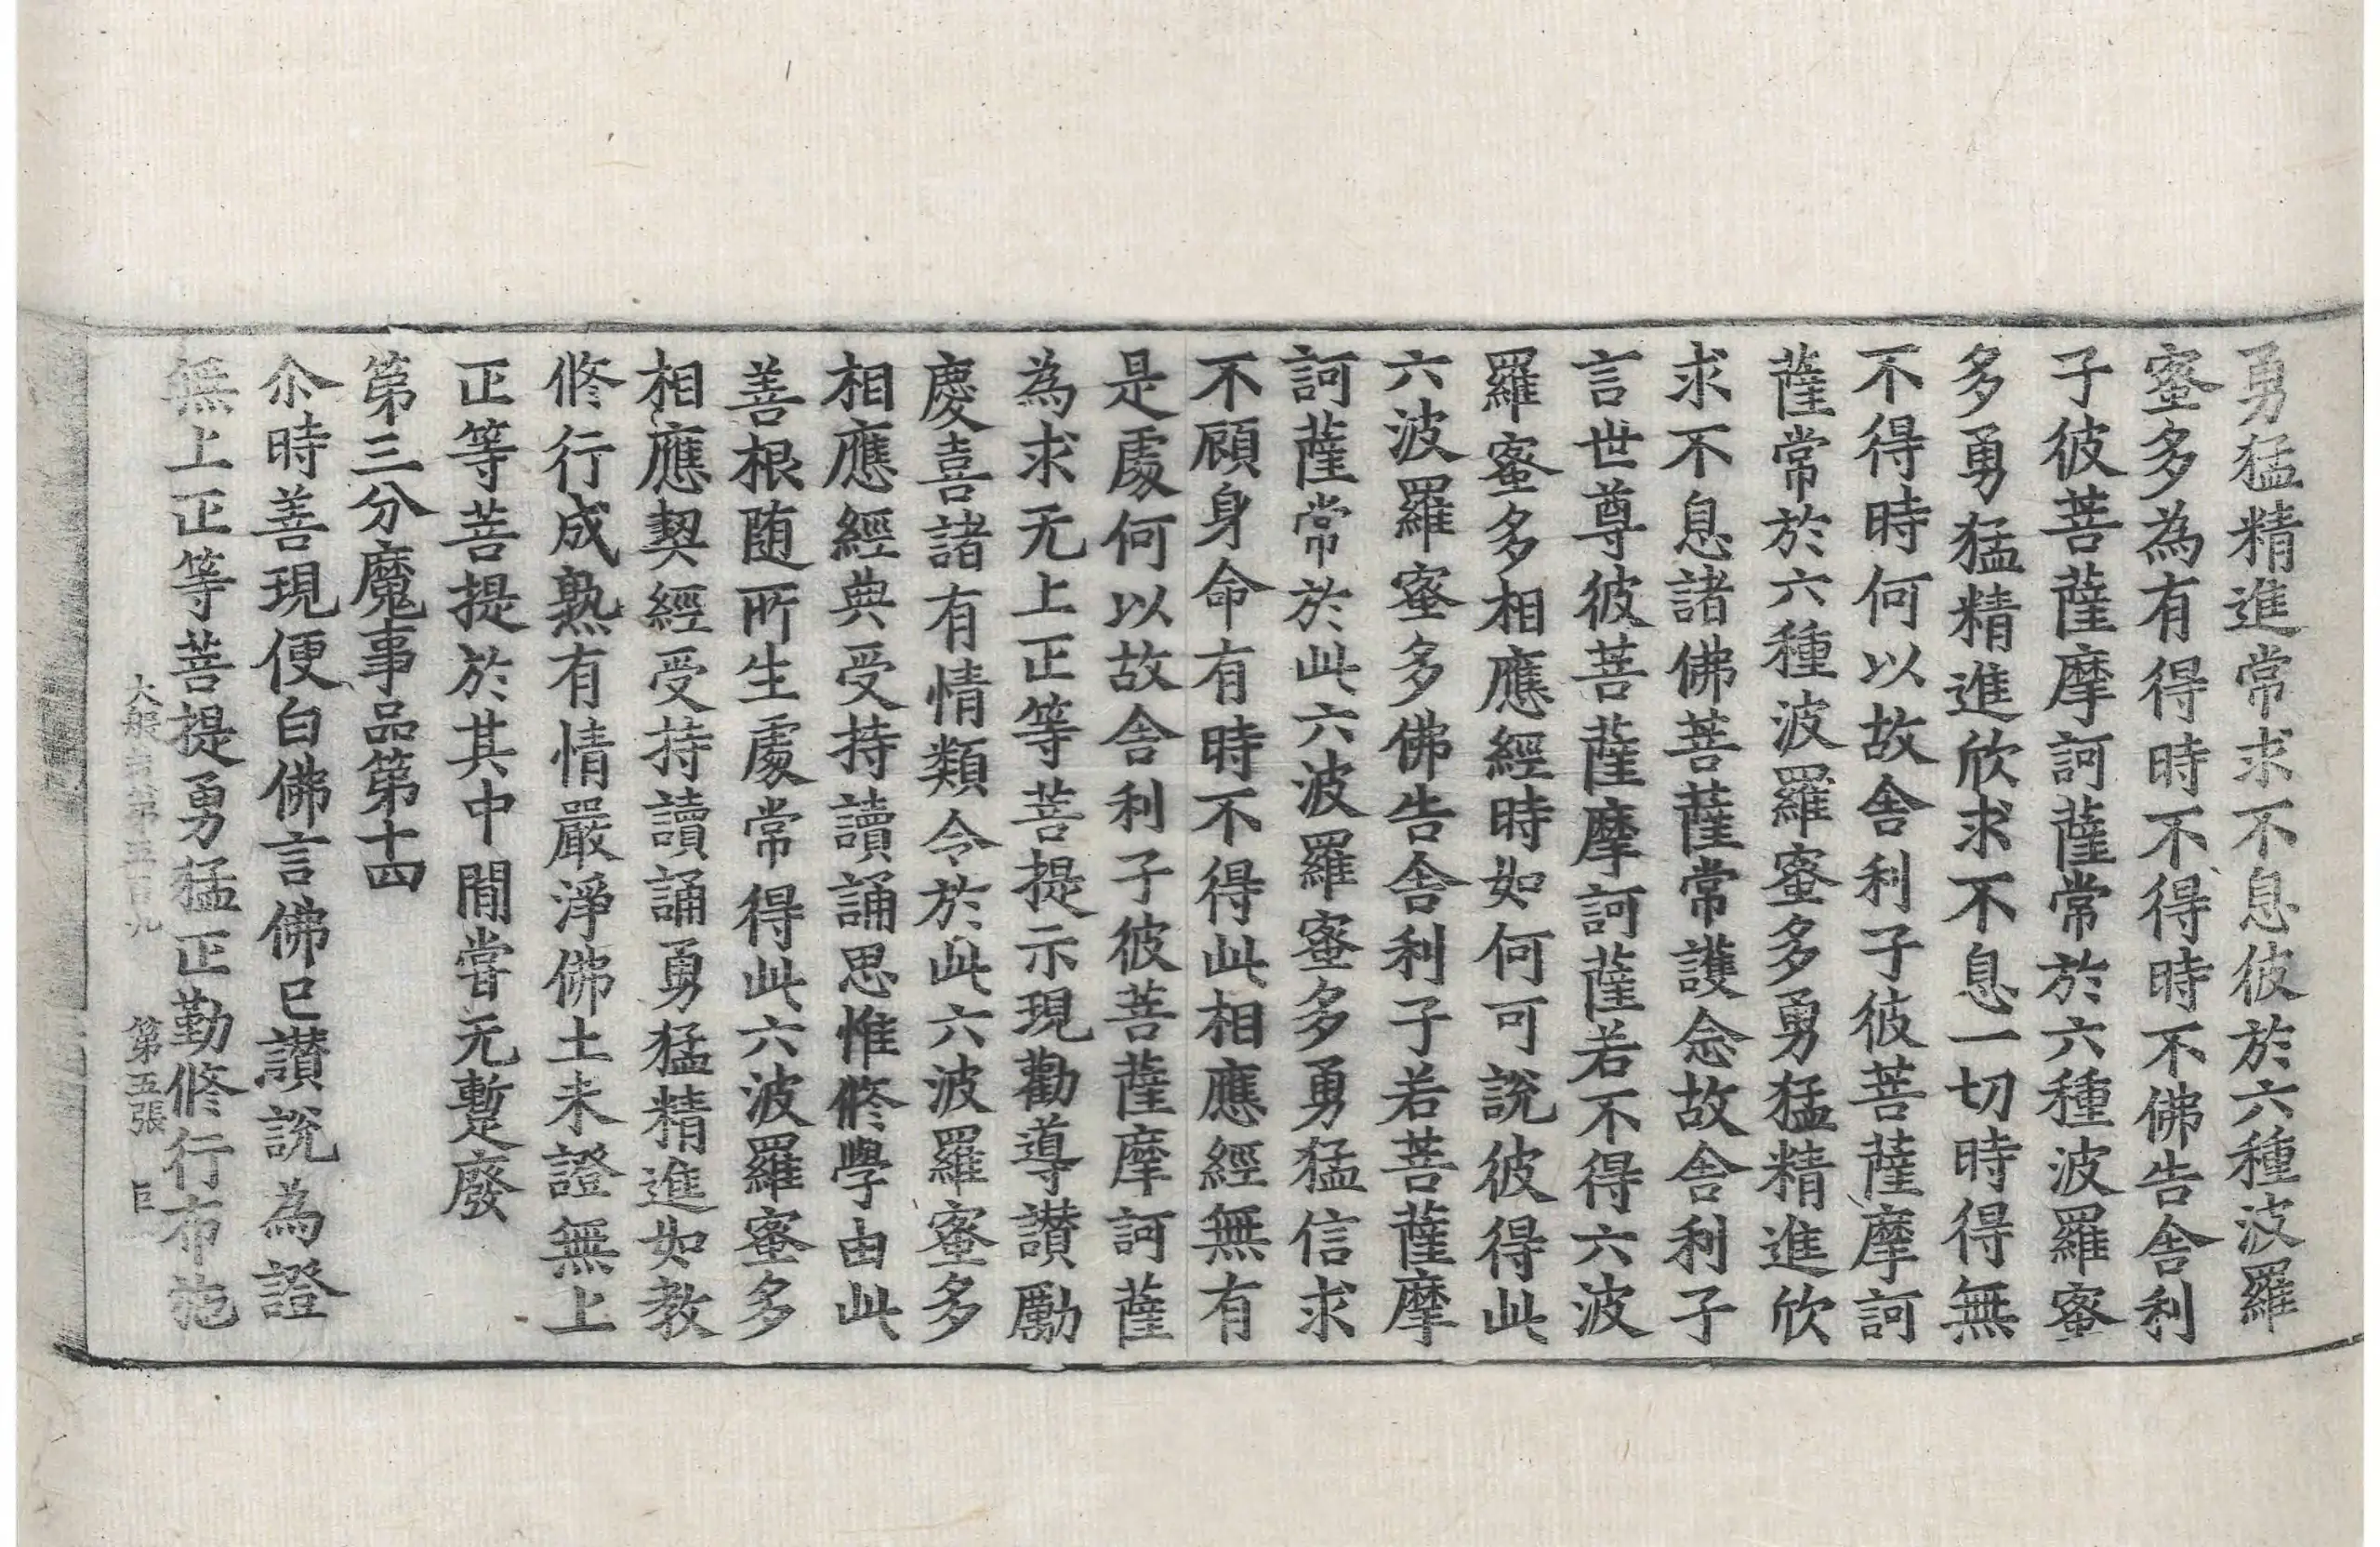 勇猛精進常求不息彼於六種波羅
蜜多為有得時不得時不佛告舍利
子彼菩薩摩訶薩常於六種波羅蜜
多勇猛精進欣求不息一切時得無
不得時何以故舍利子彼菩薩摩訶
薩常於六種波羅蜜多勇猛精進欣
求不息諸佛菩薩常護念故舍利子
言世尊彼菩薩摩訶薩若不得六波
羅蜜多相應經時如何可說彼得此
六波羅蜜多佛告舍利子若菩薩摩
訶薩常於此六波羅蜜多勇猛信求
不顧身命有時不得此相應經無有
是處何以故舍利子彼菩薩摩訶薩
為求无上正等菩提示現勸導讃勵
慶喜諸有情類令於此六波羅蜜多
相應經典受持讀誦思惟修學由此
善根随所生處常得此六波羅蜜多
相應契經受持讀誦勇猛精進如教
修行成熟有情嚴淨佛土未證無上
正等菩提於其中間嘗无蹔廢
第三分魔事品第十四
尒時善現便白佛言佛已讃說為證
無上正等菩提勇猛正勤修行布施
大般若第五百九 第五張